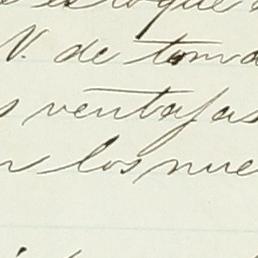 es loque
V. de toma
s ventajas
n los nue